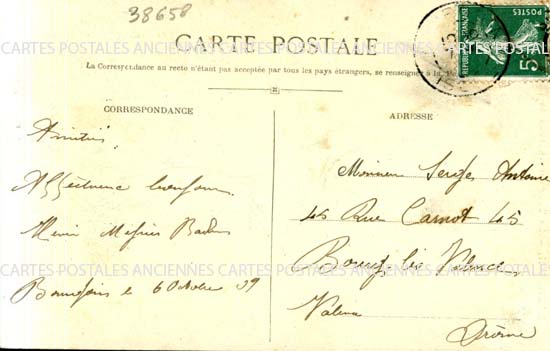 38658
CARTE POSTALE
La Correspondance au recto n'étant pas acceptée par tous les pays étrangers, se renseigner à la
RÉPUBLIQUE FRANÇAISE
POSTES
5
CARTES POSTALES ANCIENNES CARTES POSTALES ANCIENNES CARTES POSTALES
CORRESPONDANCE
ADRESSE
Amitiés
Affectueux
Bourgoin le 6 Octobre 09
Monsieur Serge Antoine
45 Rue Carnot 45
Bourg lès Valence
Valence
Drôme
CARTES POSTALES ANCIENNES CARTES POSTALES ANCIENNES CARTES POSTALES